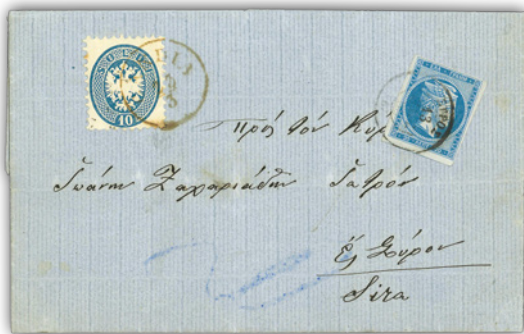 SOLDI
10
Πρὸς τὸν Κύρ
Ἰωάννην Ζαχαριάδην Ἰατρόν
Εἰς Σύρον
Sira